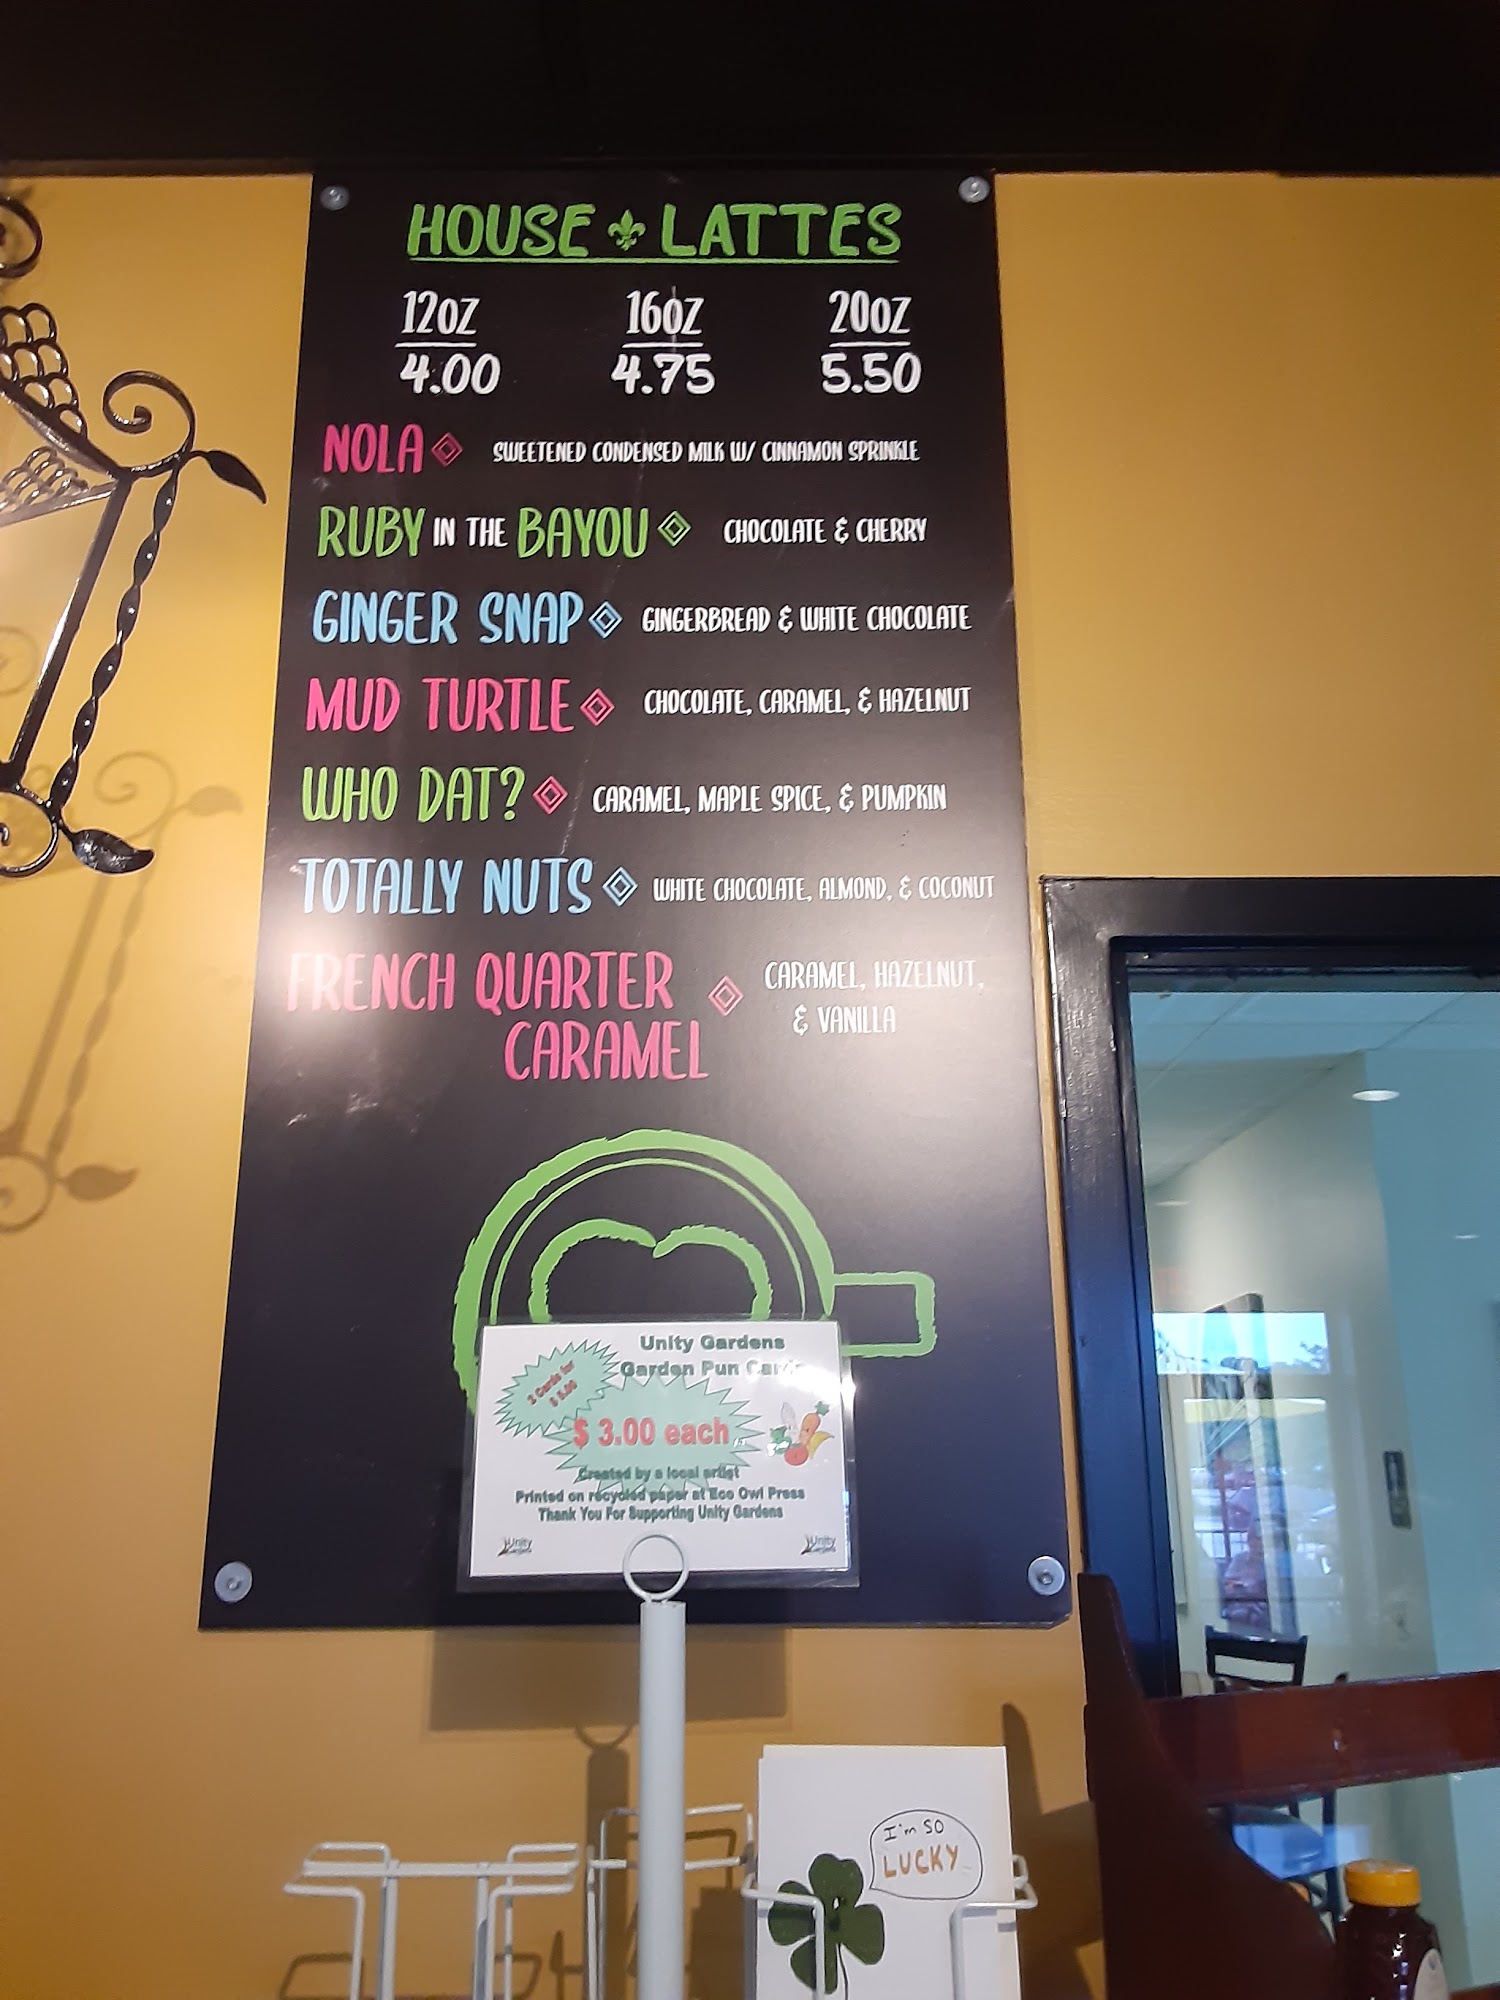 HOUSE LATTES
12OZ 16OZ 20OZ
4.00 4.75 5.50
NOLA SWEETENED CONDENSED MILK W/ CINNAMON SPRINKLE
RUBY IN THE BAYOU CHOCOLATE & CHERRY
GINGER SNAP GINGERBREAD & WHITE CHOCOLATE
MUD TURTLE CHOCOLATE, CARAMEL, & HAZELNUT
WHO DAT? CARAMEL, MAPLE SPICE, & PUMPKIN
TOTALLY NUTS WHITE CHOCOLATE, ALMOND, & COCONUT
FRENCH QUARTER CARAMEL, HAZELNUT,
CARAMEL & VANILLA
Unity Gardens
Garden Pun Cards
2 Cards for
$ 5.00
$ 3.00 each
Created by a local artist
Printed on recycled paper at Eco Owl Press
Thank You For Supporting Unity Gardens
Unity Gardens
Unity Gardens
I'm SO
LUCKY